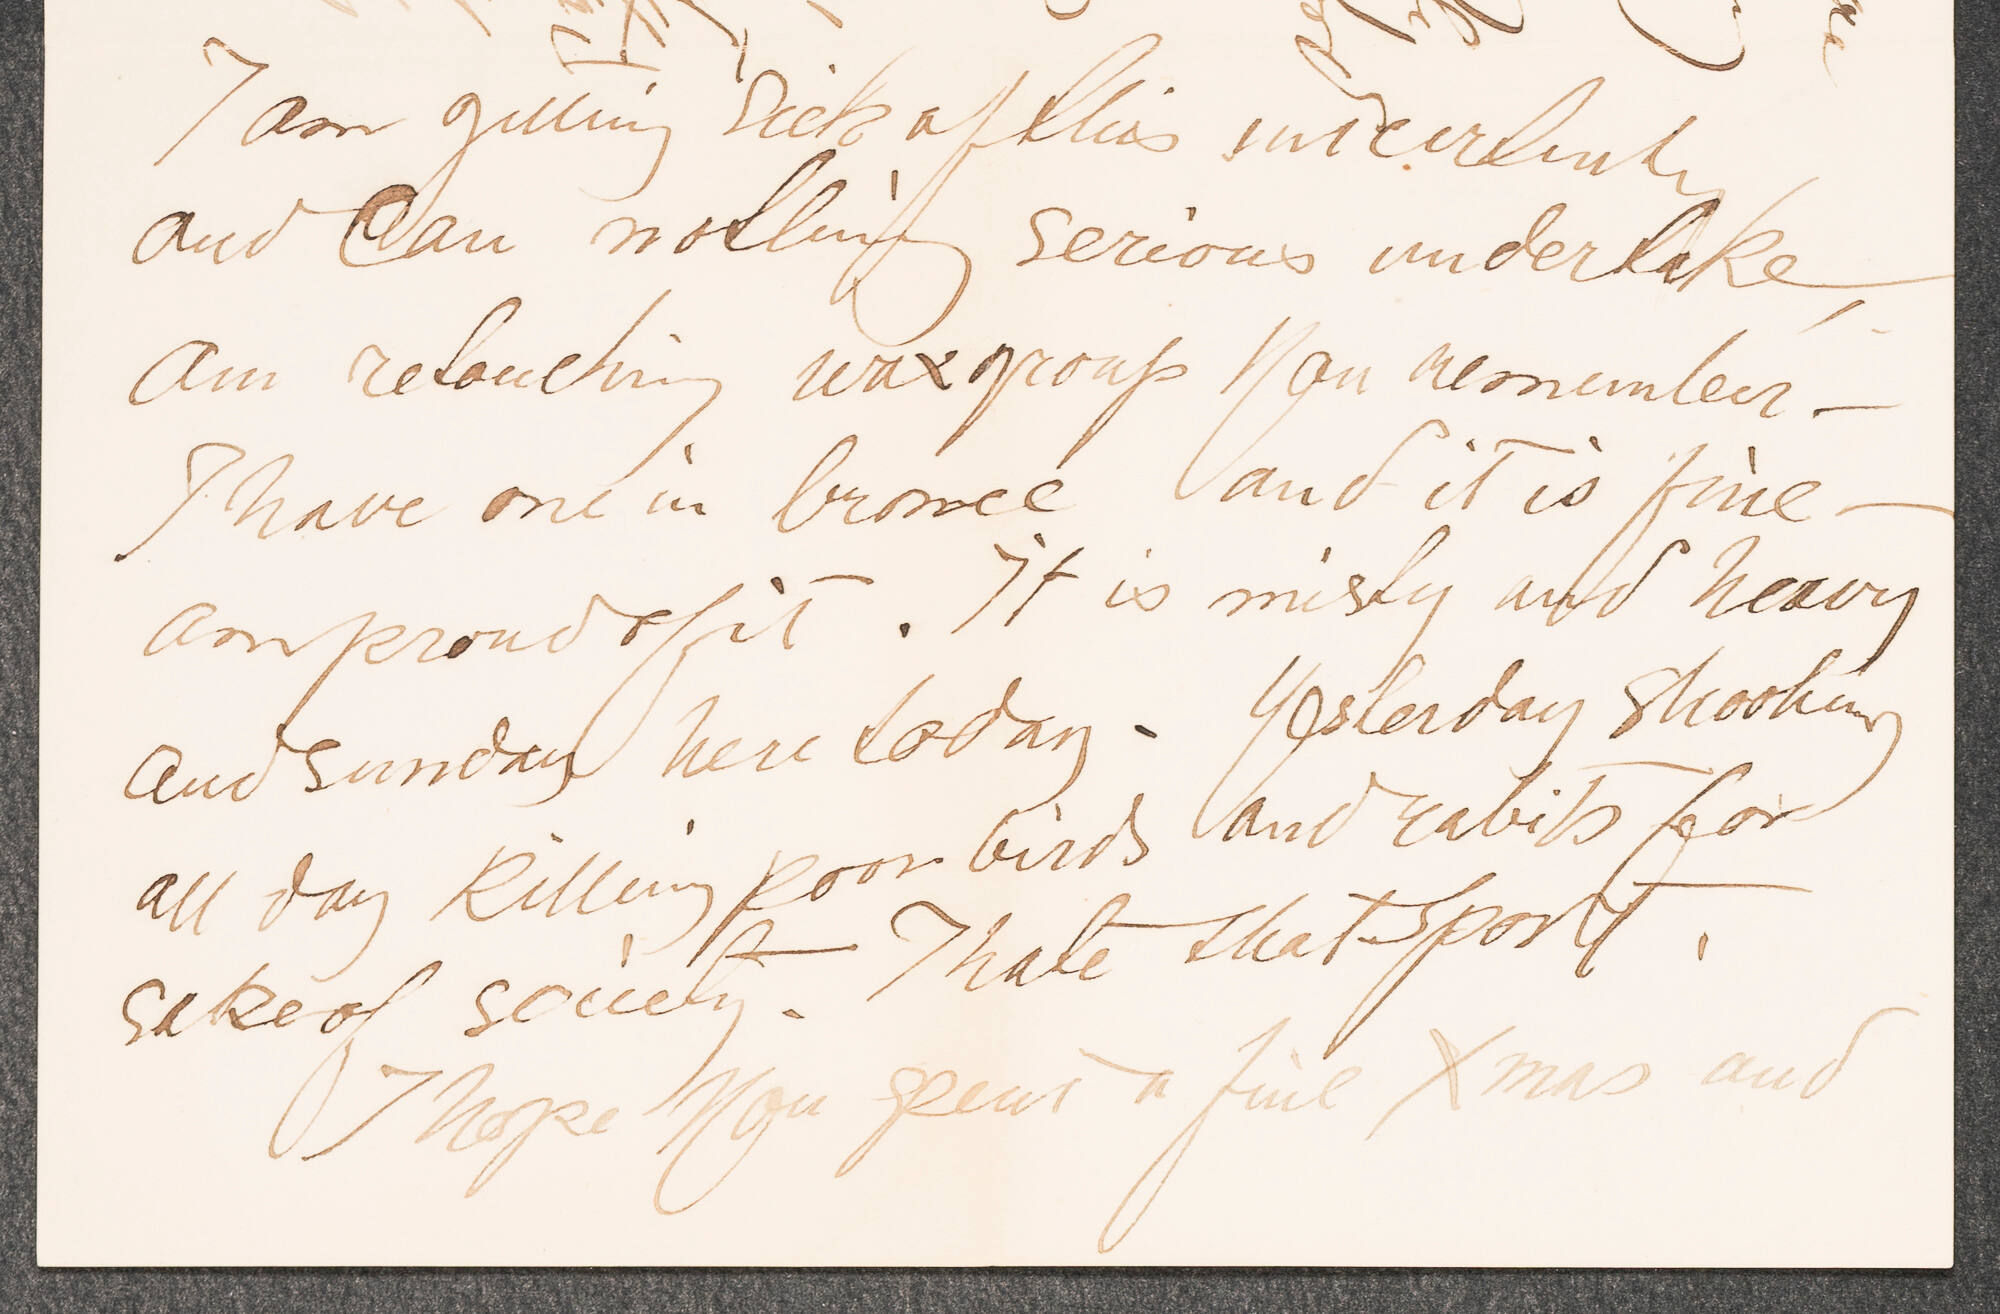 I am getting sick of this uncertenty
and can nothing serious undertake,
am retouching wax group you remember —
I have one in bronce and it is fine —
am proud of it. It is misty and heavy
and sunday here today - Yesterday shooting
all day killing poor birds and rabits for
sake of society. - I hate that sport.
I hope you spent a fine Xmas and